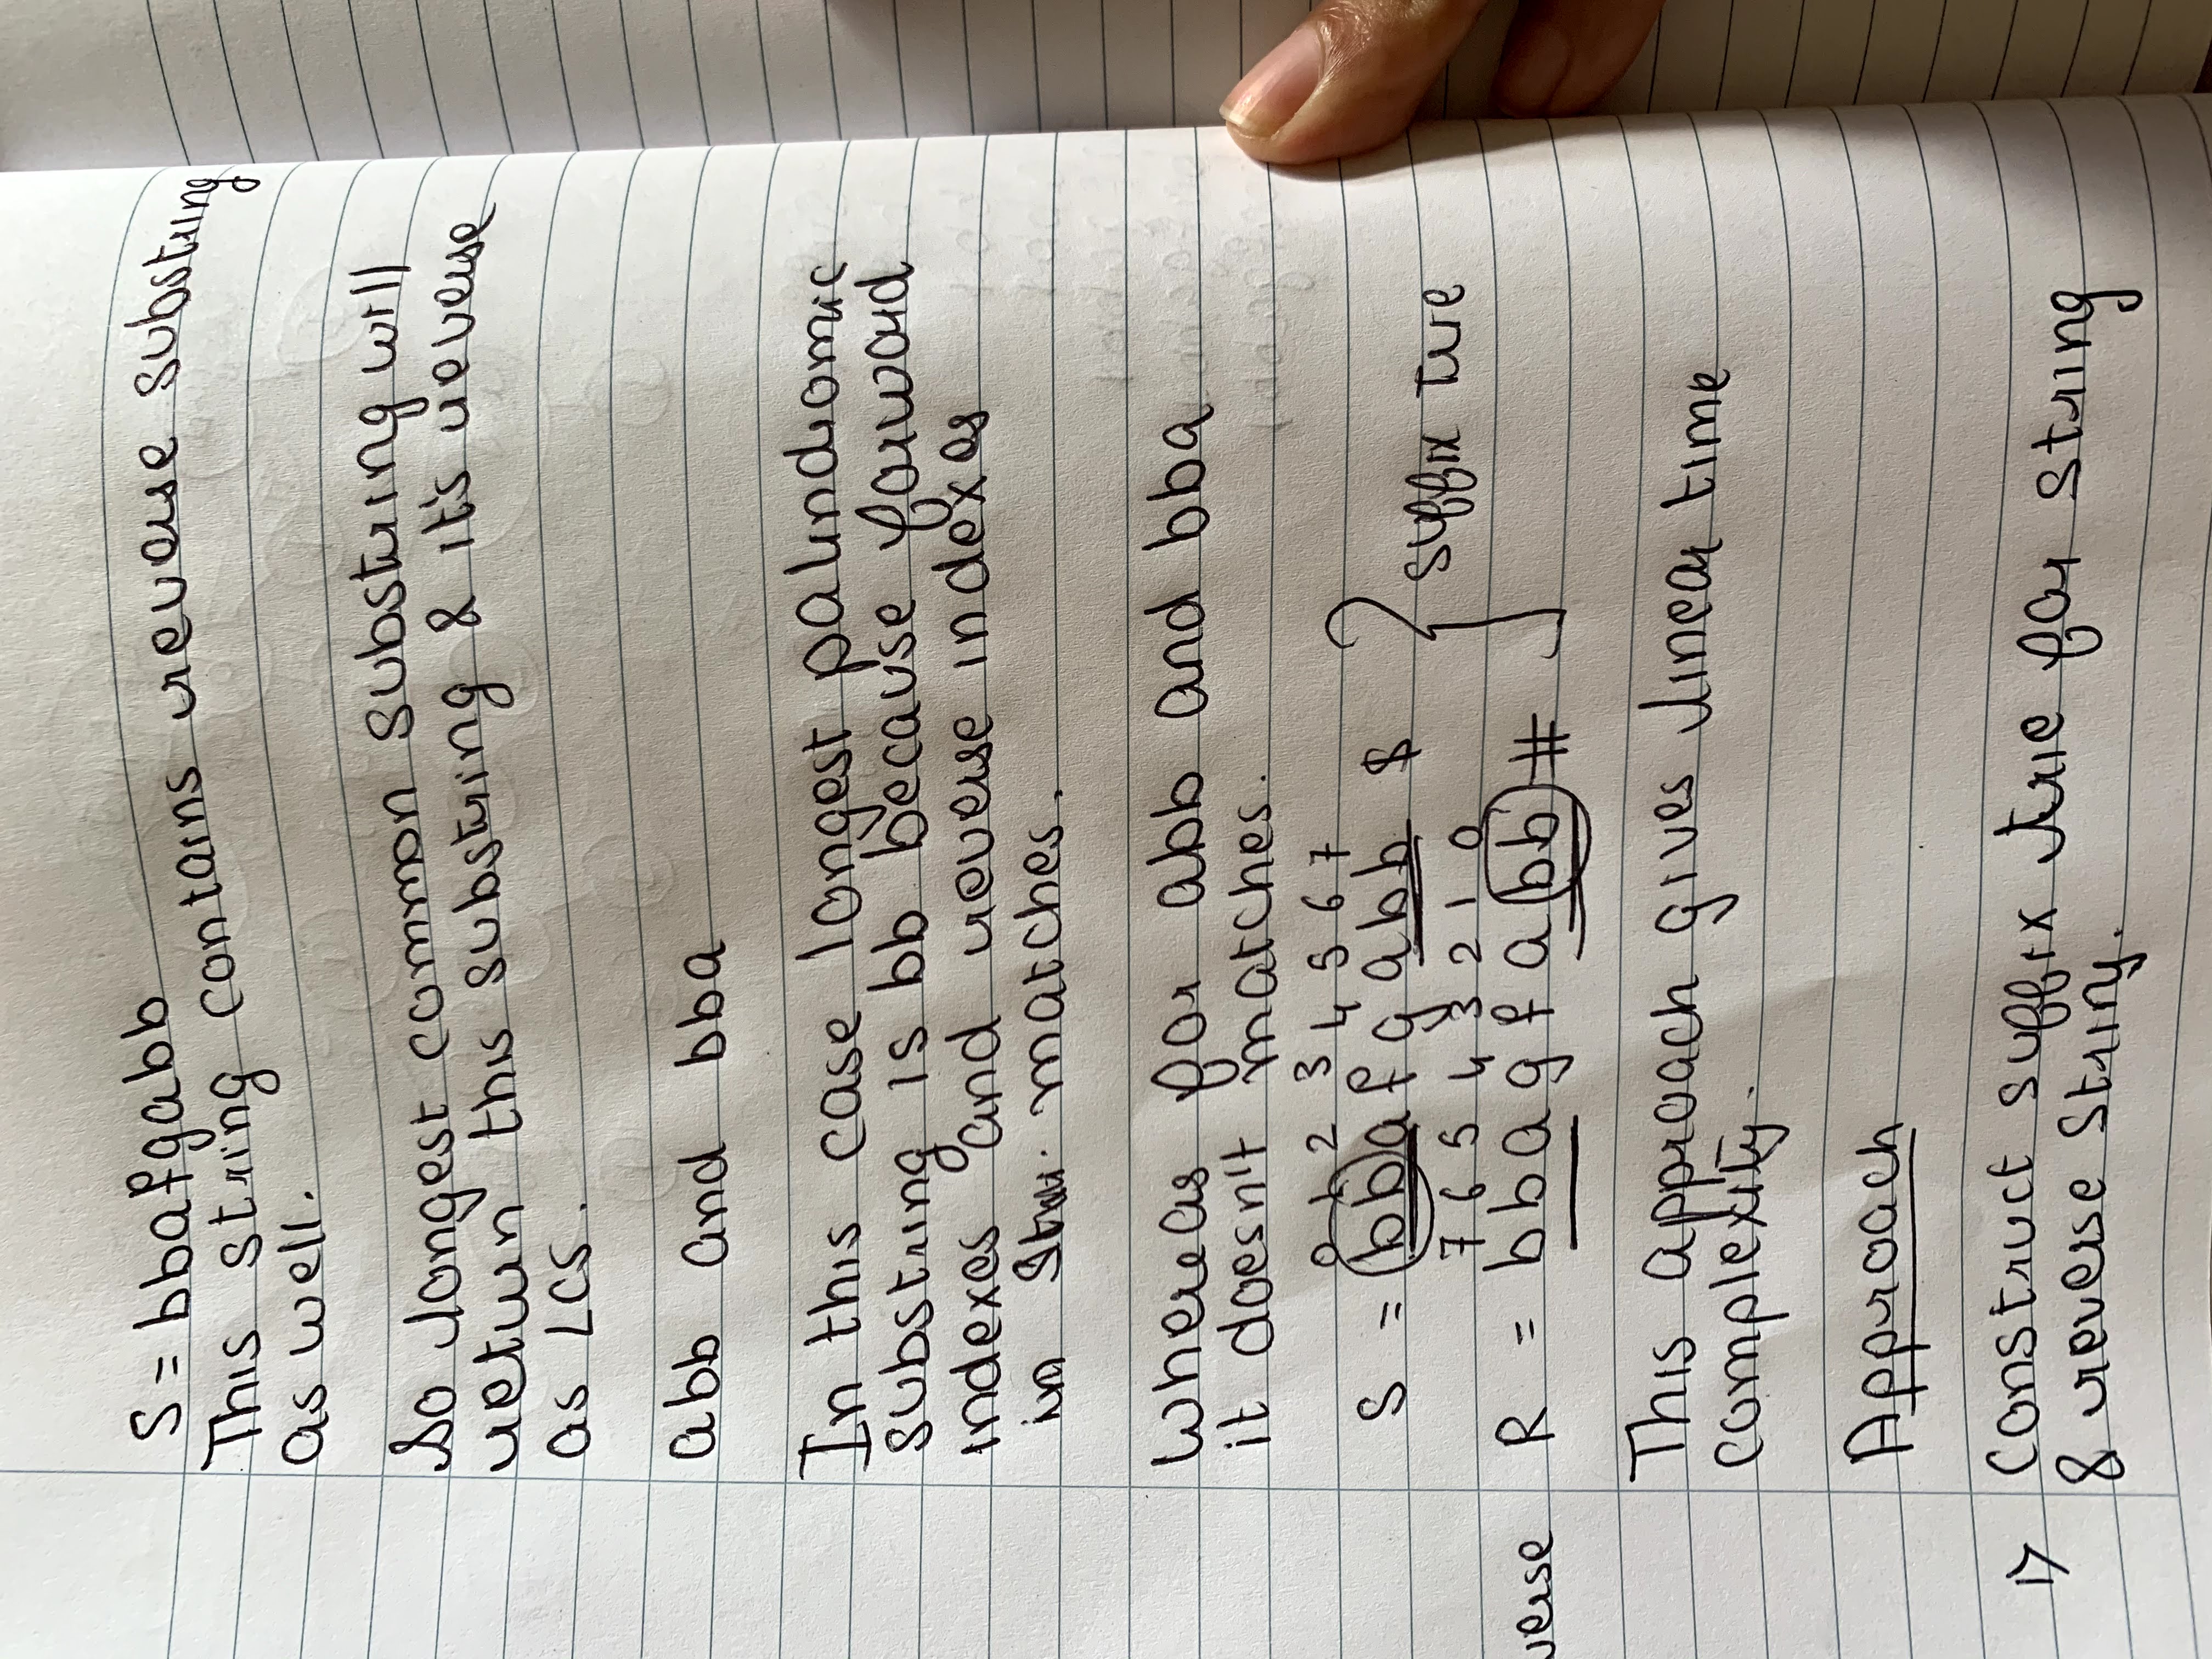 S = bbafgabb
This string contains reverse substring
as well.
So longest common substring will
return this substring & it's reverse
as LCS.
abb and bba
In this case longest palindromic
substring is bb because forward
indexes and reverse indexes
in matches.
Whereas for abb and bba
it doesn't matches.
0 1 2 3 4 5 6 7
S = bbafgabb $
7 6 5 4 3 2 1 0
R = bbagfabb #
suffix trie
This approach gives linear time
complexity.
Approach
1> Construct suffix trie for string
& reverse string.